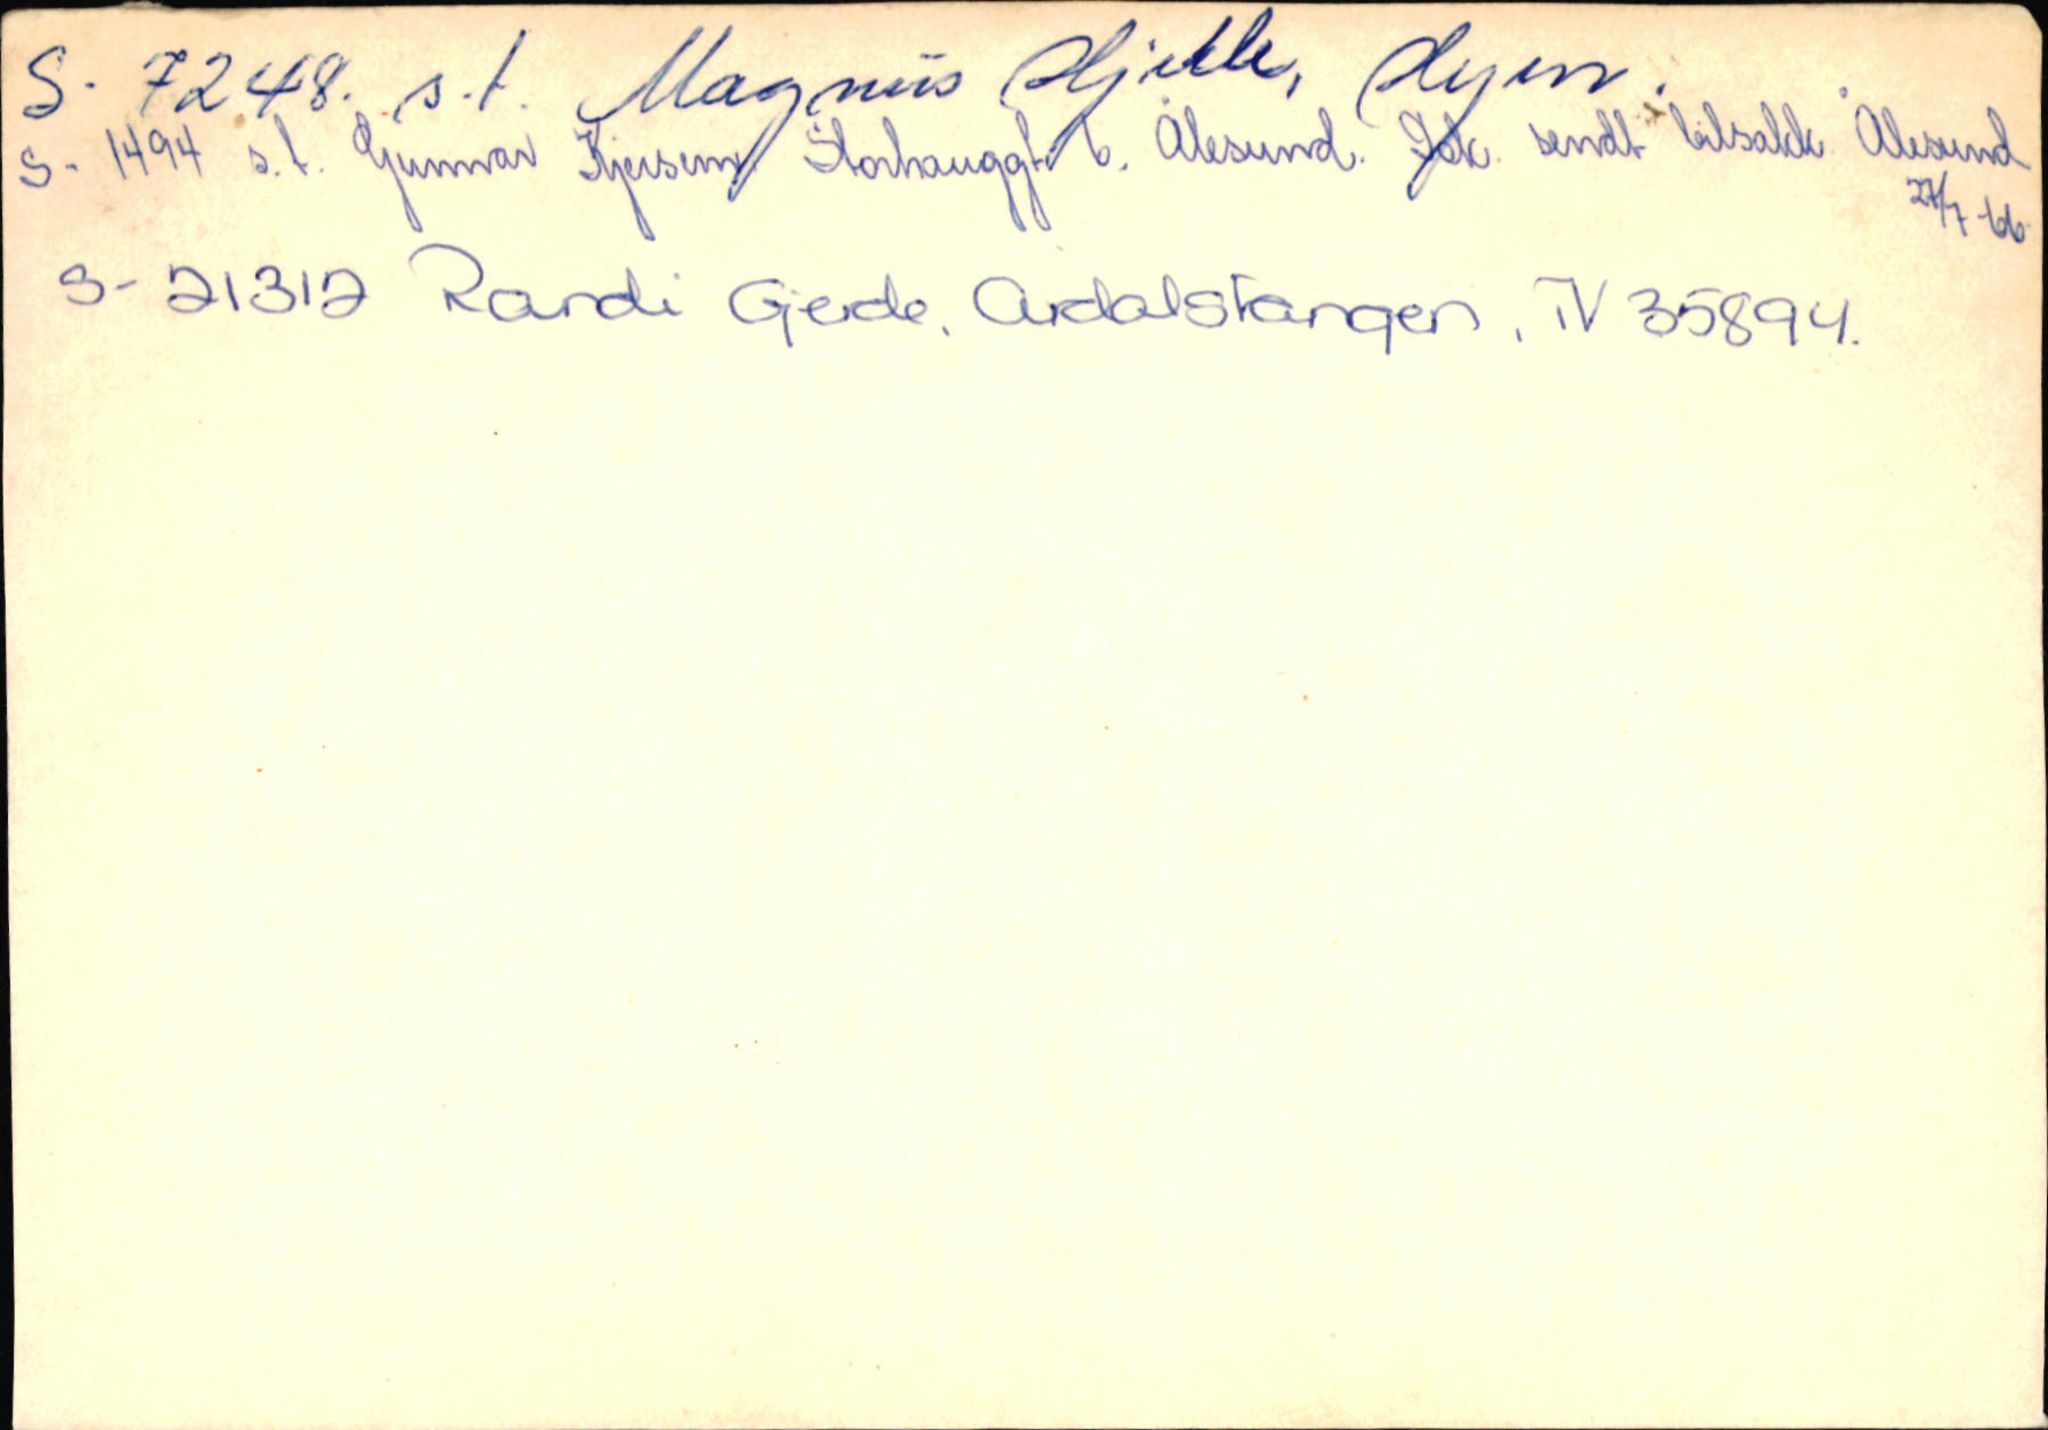 S- 7248. s.t. Magnus Hjelle, Hyen.
S- 1494 s.t. Gunnar Kjersem Storhauggt. 6. Ålesund. sendt bilsakk. Ålesund
27/7-66.
S- 21312 Randi Gjerde, Årdalstangen, TV 35894.